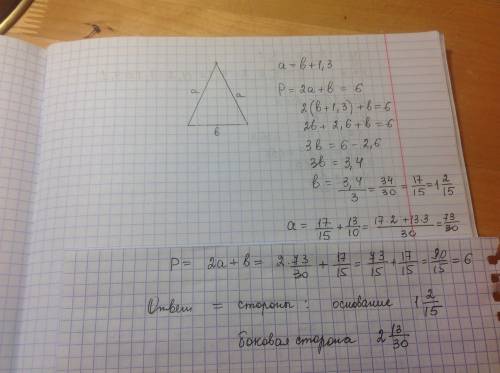 a = в+1,3
a
a
в
P = 2a + в = 6
2(в+1,3) + в = 6
2в + 2,6 + в = 6
3в = 6 - 2,6
3в = 3,4
в = 3,4/3 = 34/30 = 17/15 = 1 2/15
a = 17/15 + 13/10 = (17·2+13·3)/30 = 73/30
P = 2a + в = 2·73/30 + 17/15 = 73/15 + 17/15 = 90/15 = 6
Ответ = стороны: основание 1 2/15
боковая сторона 2 13/30